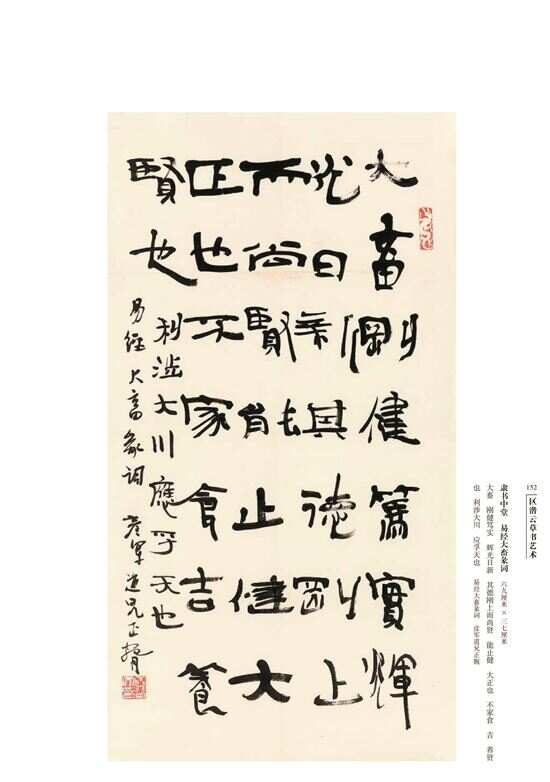 152 区潜云草书艺术
隶书中堂 易经大畜彖词 六九厘米×三七厘米
大畜 刚健笃实 辉光日新 其德刚上而尚贤 能止健 大正也 不家食 吉 养贤
也 利涉大川 应乎天也 易经大畜彖词 道兄正
大畜剛健篤實輝
光日新其德剛上
而尚賢能止健大
正也不家食吉養
賢也
利涉大川應乎天也
易經大畜彖詞 道兄正